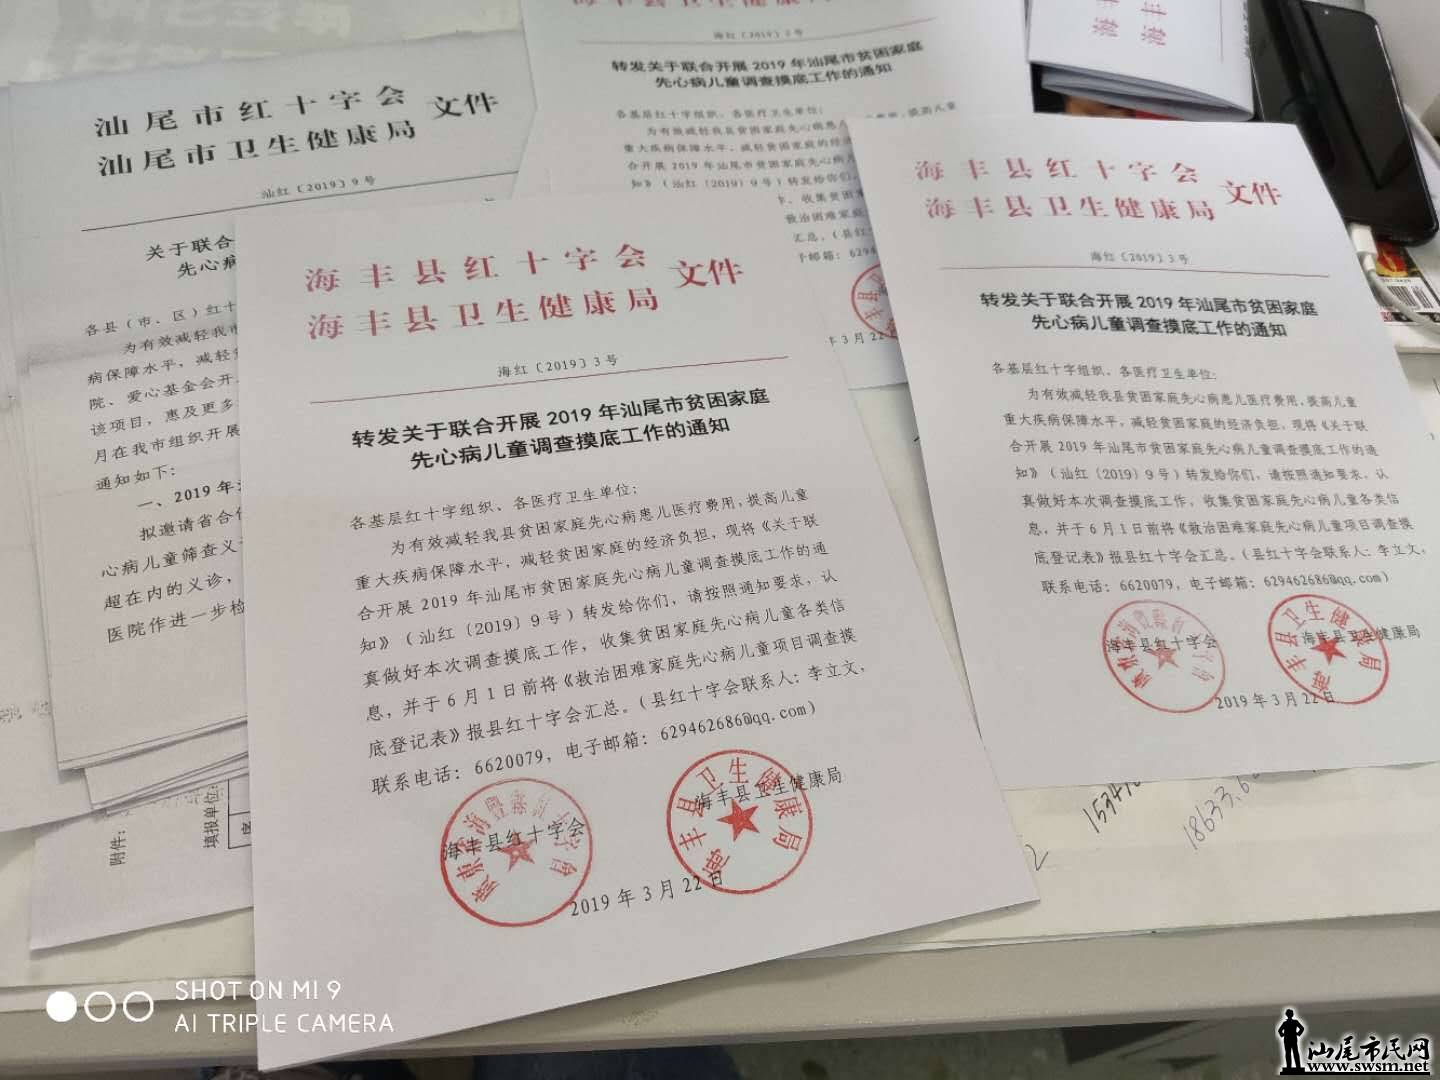 汕尾市红十字会
汕尾市卫生健康局
文件
汕红〔2019〕9号
关于联合
先心病
各县（市、区）红十
为有效减轻我市
病保障水平，减轻贫
院、爱心基金会开
该项目，惠及更多
月在我市组织开展
通知如下：
一、2019年
拟邀请省合作
心病儿童筛查义
超在内的义诊，
医院作进一步检
附件：
填报单位：
海丰县卫生健康局
海红〔2019〕3号
转发关于联合开展2019年汕尾市贫困家庭
先心病儿童调查摸底工作的通知
各基层红十字组织、各医疗卫生单位：
为有效减轻我县贫困家庭先心病患儿
重大疾病保障水平，减轻贫困家庭的经济
合开展2019年汕尾市贫困家庭先心病儿
知》（汕红〔2019〕9号）转发给你们，
，收集贫困家
救治困难家庭
汇总。（县红
子邮箱：629
年3月22
海丰县红十字会
海丰县卫生健康局
文件
海红〔2019〕3号
转发关于联合开展2019年汕尾市贫困家庭
先心病儿童调查摸底工作的通知
各基层红十字组织、各医疗卫生单位：
为有效减轻我县贫困家庭先心病患儿医疗费用，提高儿童
重大疾病保障水平，减轻贫困家庭的经济负担，现将《关于联
合开展2019年汕尾市贫困家庭先心病儿童调查摸底工作的通
知》（汕红〔2019〕9号）转发给你们，请按照通知要求，认
真做好本次调查摸底工作，收集贫困家庭先心病儿童各类信
息，并于6月1日前将《救治困难家庭先心病儿童项目调查摸
底登记表》报县红十字会汇总。（县红十字会联系人：李立文，
联系电话：6620079，电子邮箱：629462686@qq.com）
海丰县红十字会
海丰县卫生健康局
海丰县卫生健康局
2019年3月22日
海丰县红十字会
海丰县卫生健康局
文件
海红〔2019〕3号
转发关于联合开展2019年汕尾市贫困家庭
先心病儿童调查摸底工作的通知
各基层红十字组织、各医疗卫生单位：
为有效减轻我县贫困家庭先心病患儿医疗费用，提高儿童
重大疾病保障水平，减轻贫困家庭的经济负担，现将《关于联
合开展2019年汕尾市贫困家庭先心病儿童调查摸底工作的通
知》（汕红〔2019〕9号）转发给你们，请按照通知要求，认
真做好本次调查摸底工作，收集贫困家庭先心病儿童各类信
息，并于6月1日前将《救治困难家庭先心病儿童项目调查摸
底登记表》报县红十字会汇总。（县红十字会联系人：李立文，
联系电话：6620079，电子邮箱：629462686@qq.com）
海丰县红十字会
海丰县卫生健康局
海丰县卫生健康局
2019年3月22日
海丰
海丰
18633.6
SHOT ON MI 9
AI TRIPLE CAMERA
汕尾市民网
www.swsm.net